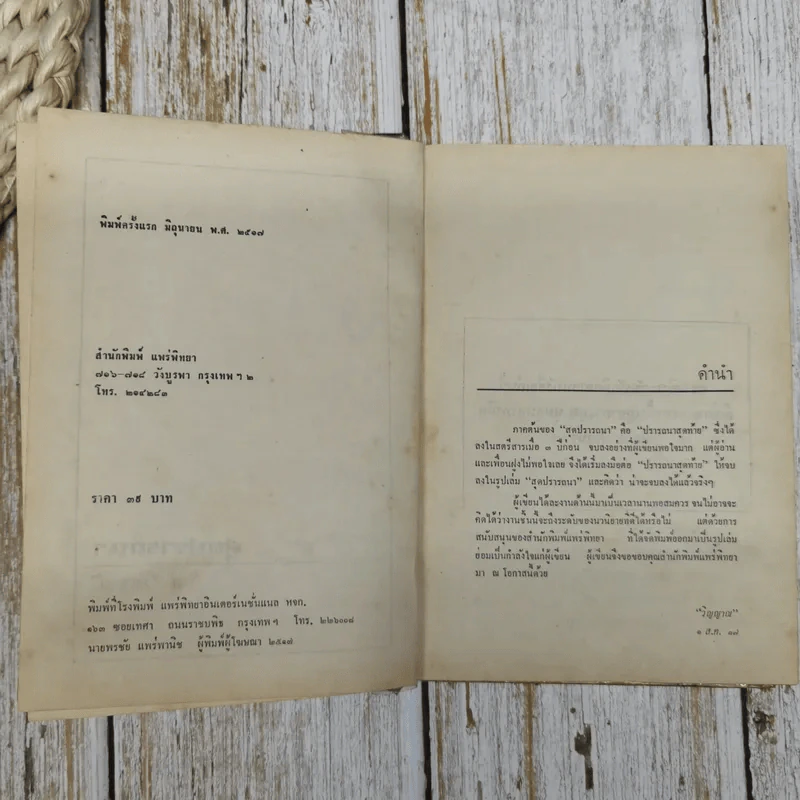 พิมพ์ครั้งแรก มิถุนายน พ.ศ. ๒๕๑๗
สำนักพิมพ์ แพร่พิทยา
๗๑๖-๗๑๘ วังบูรพา กรุงเทพฯ ๒
โทร. ๒๑๔๒๘๓
ราคา ๓๕ บาท
พิมพ์ที่โรงพิมพ์ แพร่พิทยาอินเตอร์เนชั่นแนล หจก.
๑๖๓ ซอยเทศา ถนนราชบพิธ กรุงเทพฯ โทร. ๒๒๖๐๐๘
นายพรชัย แพร่พานิช ผู้พิมพ์ผู้โฆษณา ๒๕๑๗
คำนำ
ภาคต้นของ “สุดปรารถนา” คือ “ปรารถนาสุดท้าย” ซึ่งได้
ลงในสตรีสารเมื่อ ๓ ปีก่อน จบลงอย่างที่ผู้เขียนพอใจมาก แต่ผู้อ่าน
และเพื่อนฝูงไม่พอใจเลย จึงได้เริ่มลงมือต่อ “ปรารถนาสุดท้าย” ให้จบ
ลงในรูปเล่ม “สุดปรารถนา” และคิดว่า น่าจะจบลงได้แล้วจริงๆ
ผู้เขียนได้ละงานด้านนี้มาเป็นเวลานานพอสมควร จนไม่อาจจะ
คิดได้ว่างานชิ้นนี้จะถึงระดับของนวนิยายที่ดีได้หรือไม่ แต่ด้วยการ
สนับสนุนของสำนักพิมพ์แพร่พิทยา ที่ได้จัดพิมพ์ออกมาเป็นรูปเล่ม
ย่อมเป็นกำลังใจแก่ผู้เขียน ผู้เขียนจึงขอขอบคุณสำนักพิมพ์แพร่พิทยา
มา ณ โอกาสนี้ด้วย
“วิญญาณ”
๑ ส.ค. ๑๗